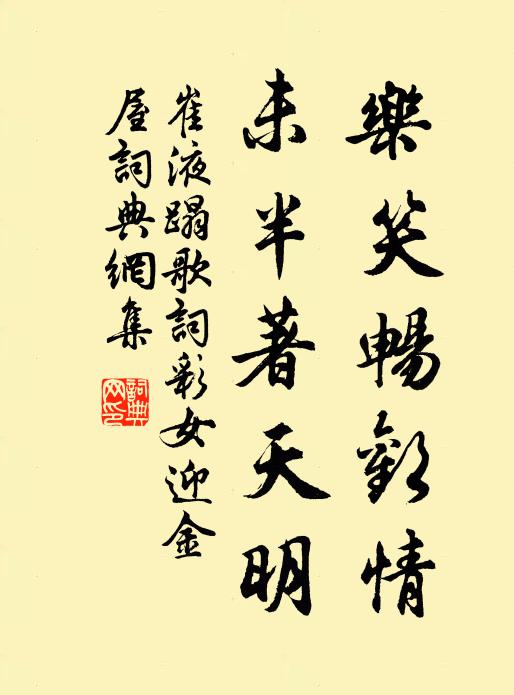 樂笑暢歡情
未半著天明
崔液蹋歌詞彩女迎金
屋詞典網集
詞典網印